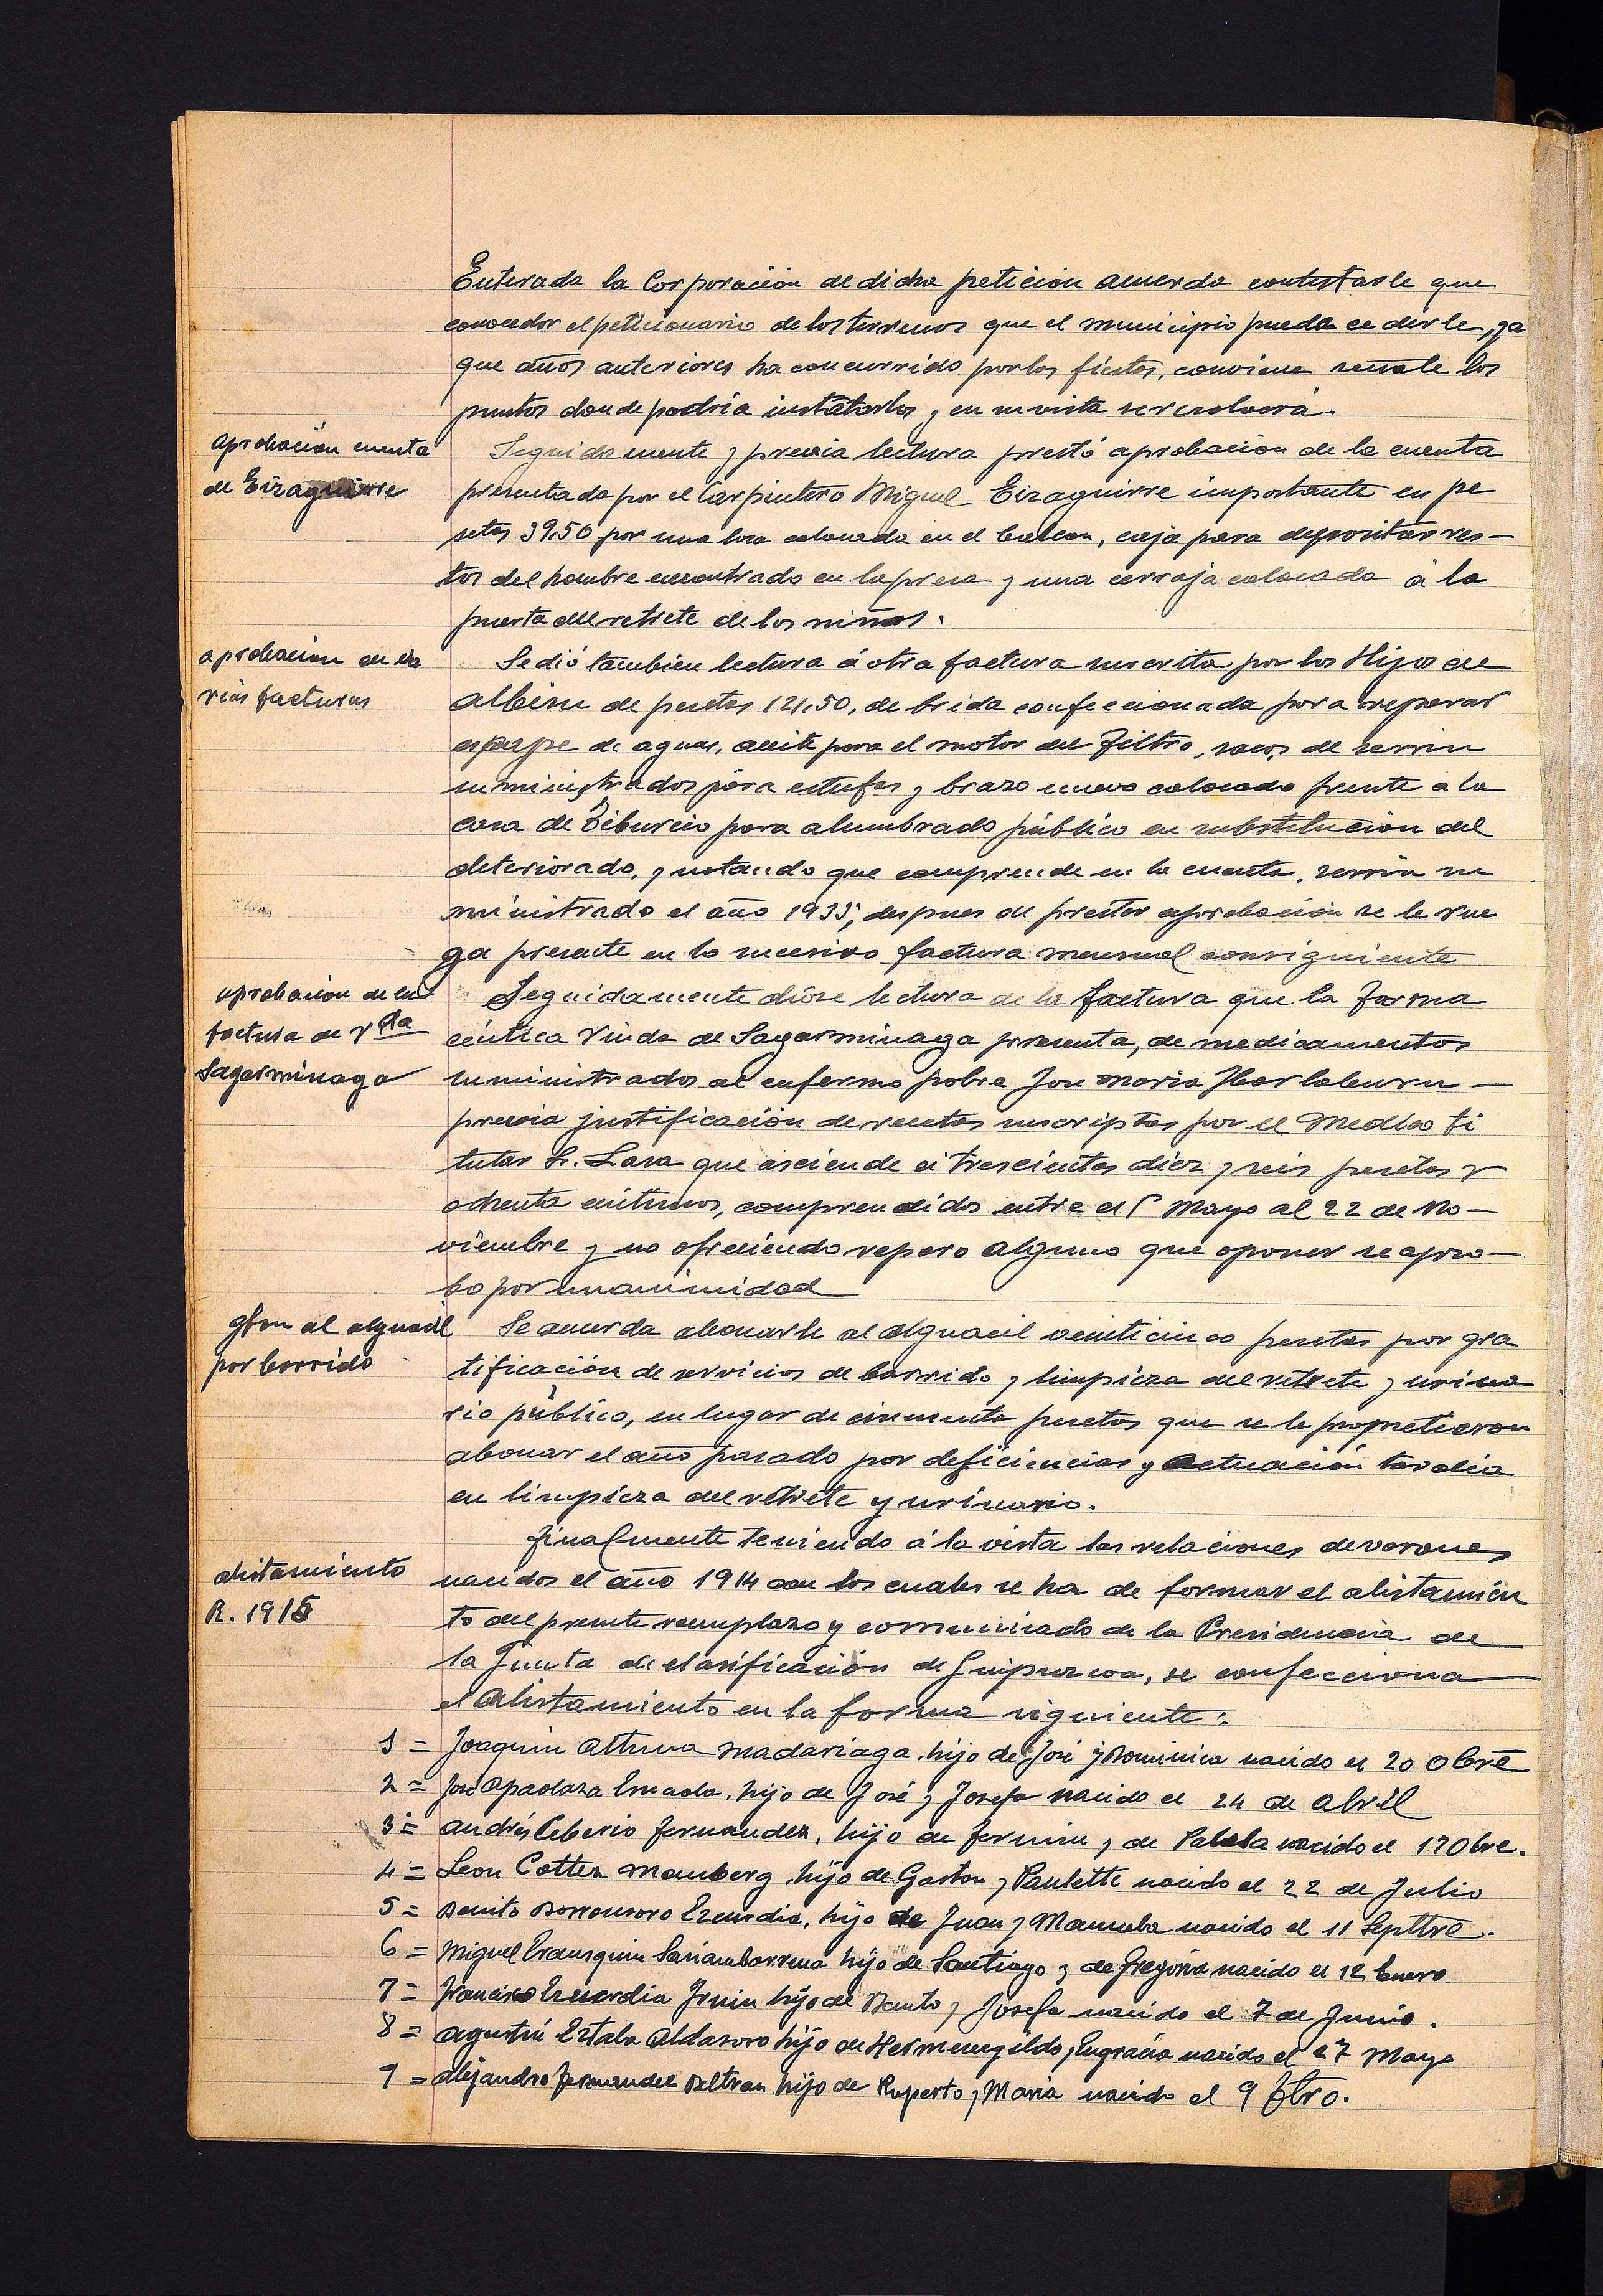 Enterada la Corporación de dicha peticion acuerda contestarle que
conocedor el peticionario de los terrenos que el municipio pueda cederle, ya
que años anteriores ha concurrido por las fiestas, conviene señale los
puntos donde podria instalarlos y en su vista se resolverá.
aprobacion cuenta
de Eizaguirre
Seguidamente y previa lectura prestó aprobacion de la cuenta
presentada por el Carpintero Miguel Eizaguirre importante en pe
setas 39,50 por una colocada en el balcon, caja para depositar res-
tos del hombre encontrado en la presa y una cerraja colocada á la
puerta del retrete de los niños.
aprobacion de va
rias facturas
Se dió tambien lectura á otra factura suscrita por los Hijos de
Albisu de pesetas 121,50, de brida confeccionada para reparar
escape de aguas, aceite para el motor del Filtro, sacos de serrin
suministrados para estufas y brazo nuevo colocado frente a la
casa de Tiburcio para alumbrado público en substitucion del
deteriorado, y notando que comprende en la cuenta, serrin su
ministrado el año 1933, despues de prestar aprobación se le rue
ga presente en lo sucesivo factura mensual consiguiente
aprobacion de la
factura de Vda
Sagarminaga
Seguidamente dióse lectura de la factura que la Farma
céutica Viuda de Sagarminaga presenta, de medicamentos
suministrados al enfermo pobre Jose Maria Ibarlaburu-
previa justificación de recetas suscriptas por el Medico ti
tular Sr. Lasa que asciende á trescientas diez y seis pesetas y
ochenta centimos, comprendidos entre el 5 Mayo al 22 de No-
viembre y no ofreciendo reparo alguno que oponer se apro-
bo por unanimidad
gfon al alguacil
por barrido
Se acuerda abonarle al alguacil veinticinco pesetas por gra
tificación de servicios de barrido y limpieza del retrete y urina
rio público, en lugar de cincuenta pesetas que se le prometieron
abonar el año pasado por deficiencias y actuación tardia
en limpieza del retrete y urinario.
alistamiento
R. 1915
Finalmente teniendo á la vista las relaciones de varones
nacidos el año 1914 con los cuales se ha de formar el alistamien
to del presente reemplazo y comunicado de la Presidencia de
la Junta de clasificación de Guipuzcoa, se confecciona
el Alistamiento en la forma siguiente:
1 = Joaquin Altuna Madariaga, hijo de José y Dominica nacido el 20 Obre
2 = José Apaolaza hijo de José y Josefa nacido el 24 de Abril
3 = Andrés Ceberio Fernandez, hijo de Fermin y de nacido el 17 Obre.
4 = Leon Cotten Mauberg, hijo de Gaston y Paulette nacido el 22 de Julio
5 = Benito Dorronsoro Ezcurdia, hijo de Juan y Manuela nacido el 11 Septtre.
6 = Miguel Erausquin Sariambarrena hijo de Santiago y de Gregoria nacido el 12 Enero
7 = Francisco Ezcurdia Irruin hijo de Benito y Josefa nacido el 7 de Junio.
8 = Agustin Eztala Aldasoro hijo de Hermenegildo y Engracia nacido el 27 Mayo
9 = Alejandro Fernandez Beltran hijo de Ruperto y Maria nacido el 9 Fbro.